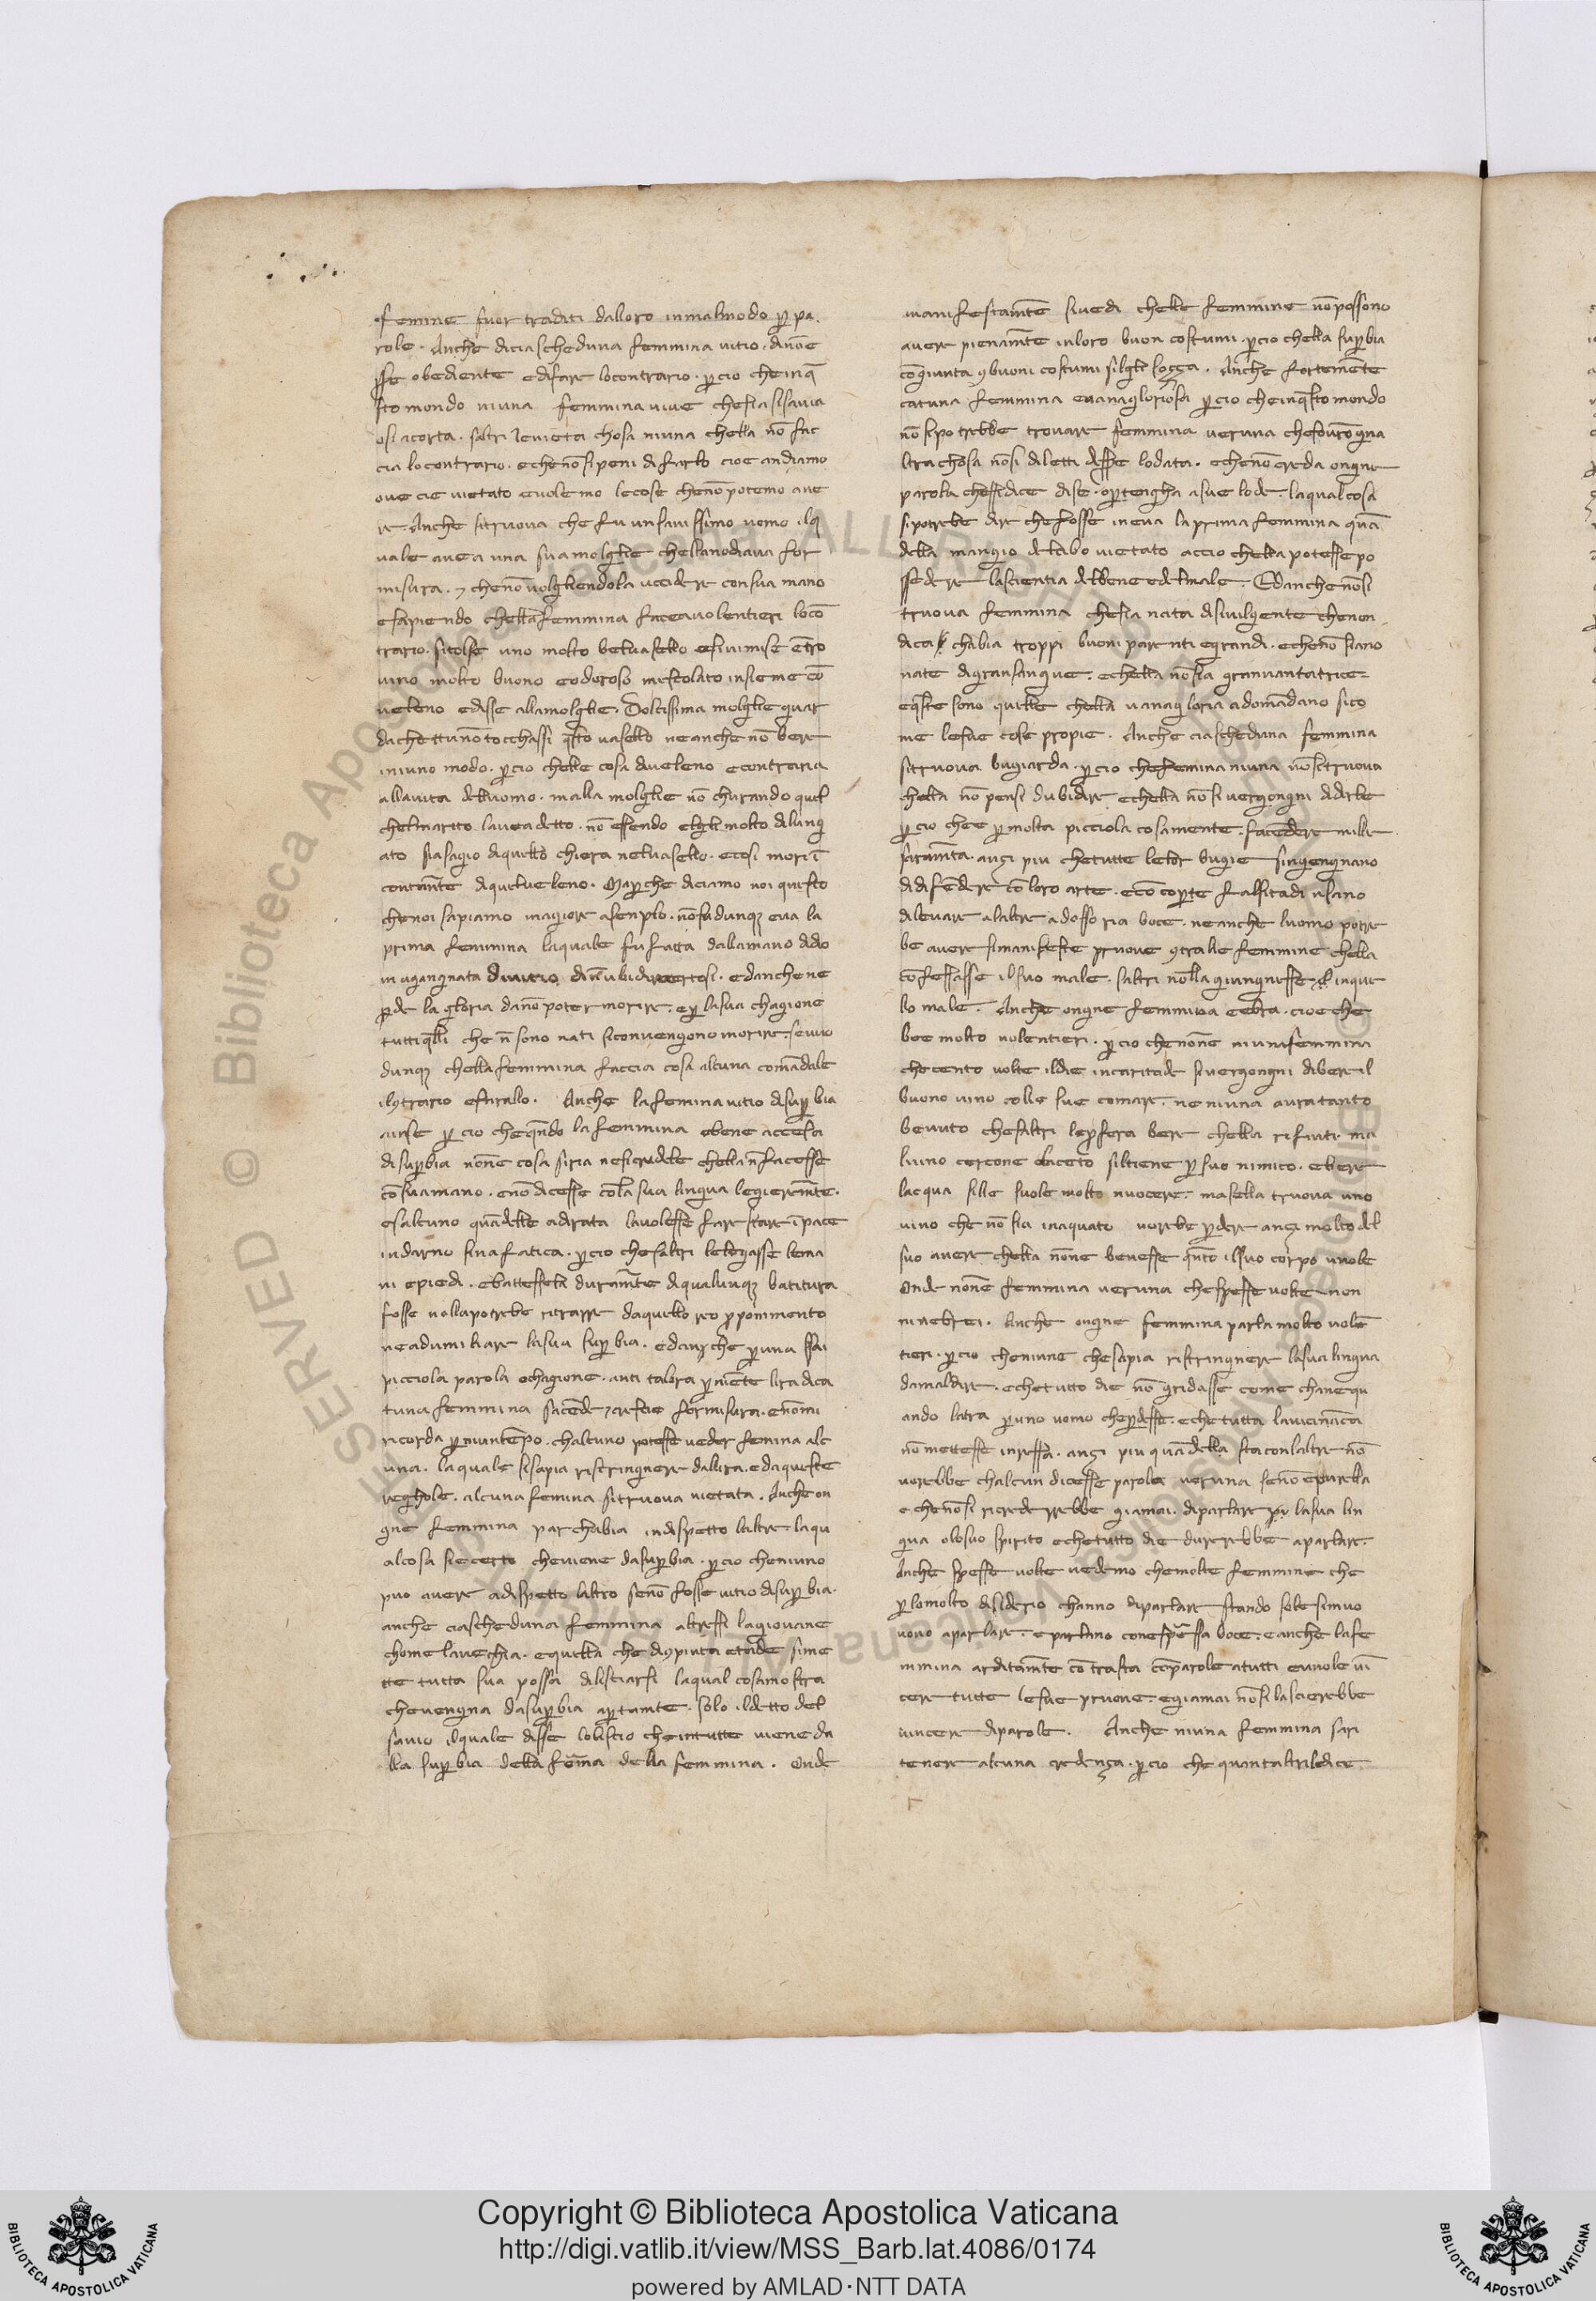 femine fuor traditi dalloro inmalmodo p pa
role. Anche diciascheduna femmina uitio. dinōe
sse obediente edifare locontrario. pcio cheinq̄
sto mondo niuna femmina uiue chesia sisauia
osi acorta. saltri leuieta chosa niuna chella nō fac
cia locontrario. echenō sipeni di farlo cioe andiamo
oue cie uietato euolemo lecose chenō potemo aue
re. Anche sitruoua che fu un sauissimo uomo ilq
uale auea una sua molglie chellanodiaua for
misura. 7 chenō uolgliendola uccidere consua mano
esapiendo chella femmina faceauolentieri locō
trario. sitolse uno molto beluasello esiuimise ētro
uino molto buono eodoroso mescolato insieme cō
ueleno edisse allamolglie. Dolcissima molglie guar
dachettunō tocchassi q̄sto uasello neanche nō bere
iniuno modo. pcio chelle cosa diueleno econtraria
allauita delluomo. malla molglie nō churando quel
chelmarito lauea detto. nō essendo elgli molto dilung
ato siasagio diquello chiera neluasello. ecosi mori ī
contanēte diquelueleno. Mapche diciamo noi questo
chenoi sapiamo magiore asenplo. nōfudunqꝫ eua la
prima femmina laquale fu fatta dallamano didio
ingangnata diuitio dinōubidirecertosi. edanchene
pde la gloria dinō poter morire. ep lasua chagione
tutti q̄lli che nō sono nati siconuengono morire. seuuo
dunqꝫ chella femmina faccia cosa alcuna comādale
il9trario efarallo. Anche lafemina uitio disupbia
inse pcio cheqn̄do la femmina ebene accesa
disupbia nōne cosa siria nesicrudele chella nō facesse
cō suamano. enō dicesse cōla sua lingua legierem̄te.
esalcuno quādelle adirata lauolesse fare stare ī pace
indarno sina fatica. pcio chesaltri lelegasse lema
ni epiedi. ebattessela duram̄te diqualunqꝫ batitura
fosse nollapotrebe ritrarre daquello reo pponimento
neadumiliare lasua supbia. edanche puna ssai
picciola parola ochagione. anti talora pniēte lira dica
tuna femmina sacēde 7 cresce formisura. enōmi
ricorda pniuntēpo. chalcuno potesse ueder femina alc
una. laquale sisapia ristringnere dallira. edaqueste
reghole. alcuna femina sitruoua uietata. Anche on
gne femmina par chabia indispetto laltre. laqu
alcosa siecerto cheuiene dasupbia. pcio cheniuno
puo auere adispetto laltro senō fosse uitio disupbia.
anche ciascheduna femmina altressi lagiouane
chome lauechia. equella che di9piuta etade sime
tte tutta sua possa dilisciarsi laqual cosamostra
cheuengna dasupbia aptam̄te. solo ildetto del
sauio ilquale disse lobliscio cheintutte uiene da
lla supbia della fēina della femmina. Onde
manifestam̄te siuedi chelle femmine nō possono
auere pienam̄te inloro buon costumi. pcio chella supbia
cōgiunta 9 buoni costumi silgli soçça. Anche fortemēte
catuna femmina euanagloriosa pcio cheinq̄sto mondo
nō sipotrebbe trouare femmina ueruna chefourōgna
ltra chosa nōsi diletti desse lodata. echenō creda ongne
parola chessidice dise. opertengha asue lode. laqualcosa
sipotrebe dire chefosse ineua laprima femmina quā
della mangio delcibo uietato accio chella potesse po
ssedere lascientia delbene edelmale. Edanche nōsi
truoua femmina chesia nata disiuilgente chenon
dica chabia troppi buoni parenti egrandi. echenō siano
nate digransangue. echella nōsia granuantatrice.
eq̄ste sono quelle chella uanagloria adomādano sico
me lesue cose propie. Anche ciascheduna femmina
sitruoua bugiarda. pcio chefemina niuna nōsitruoua
chella nō pensi dubidire echella nō siuergongni didirle
pcio chee pmolta picciola cosamente. facēdere mille
saram̄ta. anzi piu chetutte lelor bugie singengnano
didifēdere cō loro arte. ecō coperte falsitadi usano
dileuare alaltre adosso ria boce. neanche luomo potre
be auere simanifeste pruoue 9tralle femmine chella
cōfessasse ilsuo male. saltri nōlla giungnesse inque
lo male. Anche ongne femmina eebra. cioe che
bee molto uolentieri. pcio chenōne niuna femmina
checento uolte ildie incaritade siuergongni dibereil
buono uino colle sue comare. neniuna auratanto
beuuto chesaltri leprofera bere chella rifiuti. ma
luino cercone olaceto siltiene p suo nimico. elbere
lacqua sille suole molto nuocere. masella truoua uno
uino che nō sia inaquato uorebe pdere anzi molto del
suo auere chella nōne beuesse qn̄to ilsuo corpo uuole
Onde nōne femmina ueruna chespesse uolte non
ninebrei. Anche ongne femmina parla molto uolē
tieri. pcio cheniune chesapia ristringnere lasua lingua
damaldire. echetutto die nō gridasse come chanequ
ando latra puno uomo chepdesse. echetutta lauicināça
nō mettesse inressa. anzi piu quādella sta conlaltre nō
uorebbe chalcun dicesse parola ueruna senō epurella
echenōsi ricrederrebbe giamai. diparlare p lasua lin
gua olosuo spirito echetutto die durerebbe aparlare.
Anche spesse uolte uedemo chemolte femmine che
plomolto disiderio channo diparlare stando sole simuo
uono aparlare. eparlano conespressa boce. eanche lafe
mmina arditam̄te cōtrasta cōparole atutti euuole uī
cere tutte lesue pruoue. egiamai nōsi lascierebbe
uincere diparole. Anche niuna femmina sari
tenere alcuna credença. pcio che quantaltriledice
Copyright © Biblioteca Apostolica Vaticana
http://digi.vatlib.it/view/MSS_Barb.lat.4086/0174
powered by AMLAD·NTT DATA